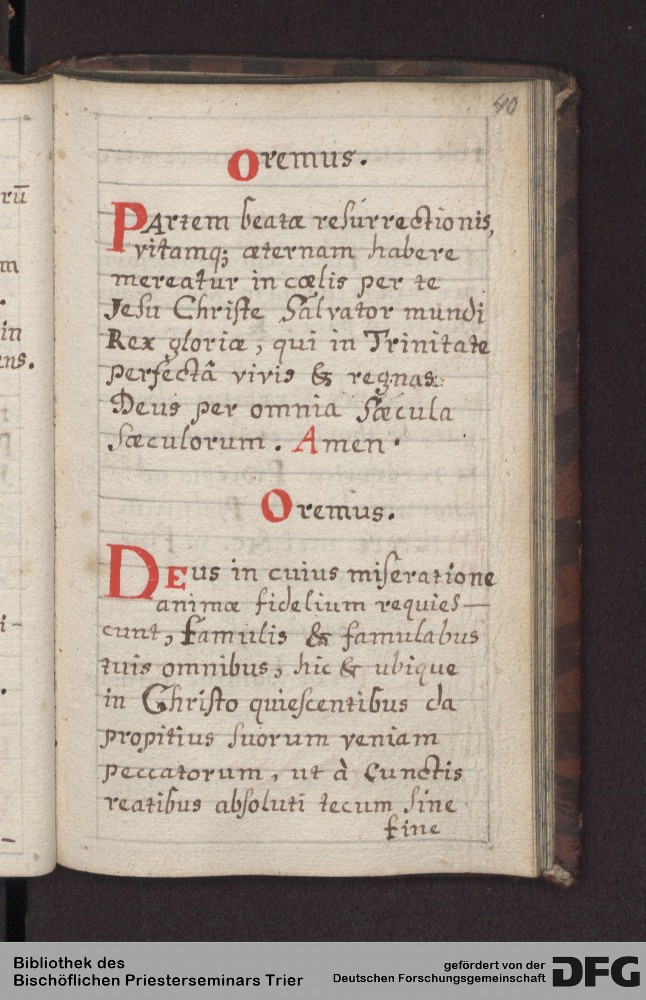 rū
m
.
in
ens.
i-
.
-
40
Oremus.
PArtem beatæ resurrectionis,
vitamq; æternam habere
mereatur in cœlis per te
Jesu Christe Salvator mundi
Rex gloriæ, qui in Trinitate
perfectâ vivis & regnas:
Deus per omnia Sæcula
Sæculorum. Amen.
Oremus.
DEus in cuius miseratione
animæ fidelium requies—
cunt, famulis & famulabus
tuis omnibus, hic & ubique
in Christo quiescentibus da
propitius suorum veniam
peccatorum, ut à Cunctis
reatibus absoluti tecum sine
fine
Bibliothek des
Bischöflichen Priesterseminars Trier
gefördert von der
Deutschen Forschungsgemeinschaft
DFG